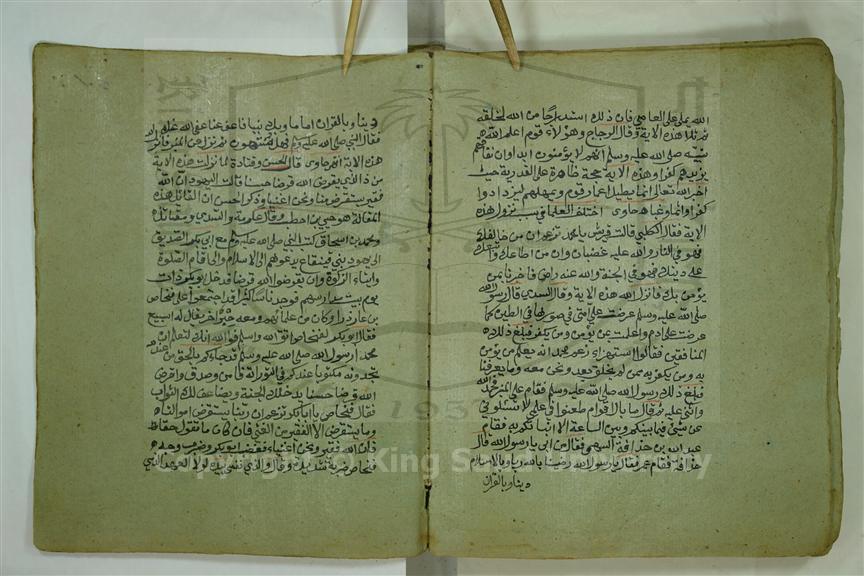 الله على العاصي فان ذلك استدراجا من الله لخلقه
ثم تلا هذه الاية وقال الزجاج وهؤلاء قوم اعلم الله
نبيه صلى الله عليه وسلم انهم لا يؤمنون ابدا وان نفاقهم
يزيدهم كفرا وهذه الاية حجة ظاهرة على القدرية حيث
اخبر الله تعالى انما يطيل اعمار قوم ويمهلهم ليزدادوا
كفرا واثما وغيا حاوي اختلف العلما في سبب نزول هذه
الاية فقال الكلبي قالت قريش يا محمد تزعم ان من خالفك
فهو في النار والله عليه غضبان وان من اطاعك وتبعك
على دينك فهو في الجنة والله عنه راض فاخبرنا بمن
يؤمن بك فانزل الله هذه الاية وقال السدي قال رسول
الله صلى الله عليه وسلم عرضت علي امتي في صورها في الطين كما
عرضت على ادم واعلمت من يؤمن ومن يكفر فبلغ ذلك
المنافقين فقالوا استهزاء زعم محمد انه يعلم من يؤمن
به ومن يكفر به ممن لم يخلق بعد ونحن معه وما يعرفنا
فبلغ ذلك رسول الله صلى الله عليه وسلم فقام على المنبر فحمد الله
واثنى عليه ثم قال ما بال اقوام طعنوا في علمي لا تسئلوني
عن شئ فيما بينكم وبين الساعة الا انباتكم به فقام
عبد الله بن حذافة السهمي فقال من ابي يا رسول الله قال
حذافة فقام عمر فقال يا رسول الله رضينا بالله ربا وبالاسلام
دينا وبالقران
دينا وبالقران اماما وبك نبيا فاعف عنا عفى الله عنك
فقال النبي صلى الله عليه وسلم فهل انتم منتهون ثم نزل عن المنبر فانزل الله
هذه الاية انتهى حاوي قال الحسن وقتادة لما نزلت هذه الاية
من ذا الذي يقرض الله قرضا حسنا قالت اليهود ان الله
فقير يستقرض منا ونحن اغنيا وذكر الحسن ان القائل هذه
المقالة هو حيي بن اخطب وقال عكرمة والسدي ومقاتل
ومحمد بن اسحاق كتب النبي صلى الله عليه وسلم مع ابي بكر الصديق
الى يهود بني قينقاع يدعوهم الى الاسلام والى اقام الصلوة
وايتاء الزكوة وان يقرضوا الله قرضا فدخل ابو بكر ذات
يوم بيت مدارسهم فوجد ناسا كثيرا قد اجتمعوا على فنحاص
بن عازورا وكان من علمائهم ومعه حبر اخر يقال له اسبيع
فقال ابو بكر لفنحاص اتق الله واسلم فوالله انك لتعلم ان
محمدا رسول الله صلى الله عليه وسلم قد جاءكم بالحق من عند الله
تجدونه مكتوبا عندكم في التوراة فامن وصدق واقرض
الله قرضا حسنا يدخلك الجنة ويضاعف لك الثواب
فقال فنحاص يا ابا بكر تزعم ان ربنا يستقرض اموالنا
وما يستقرض الا الفقير من الغني فان كان ما تقول حقا
فان الله فقير ونحن اغنياء فغضب ابو بكر وضرب وجه
فنحاص ضربة شديدة وقال والذي نفسي بيده لولا العهد الذي
Copyright © King Saud University
1957